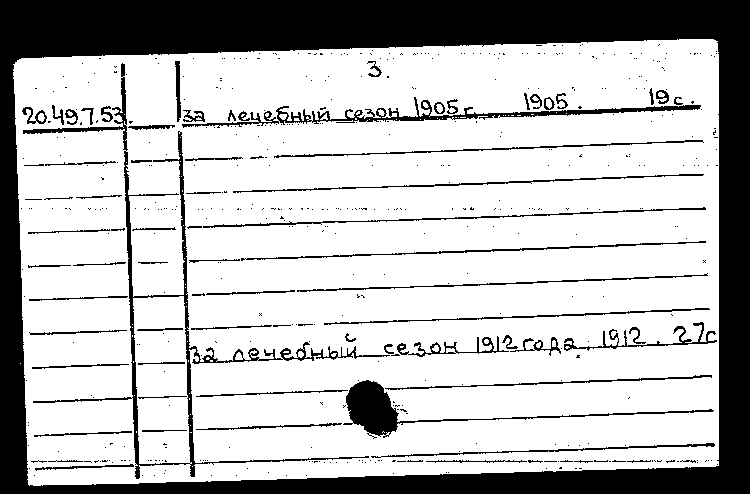 3.
20.49.7.53. за лечебный сезон 1905 г. 1905. 19 с.
за лечебный сезон 1912 года. 1912. 27с